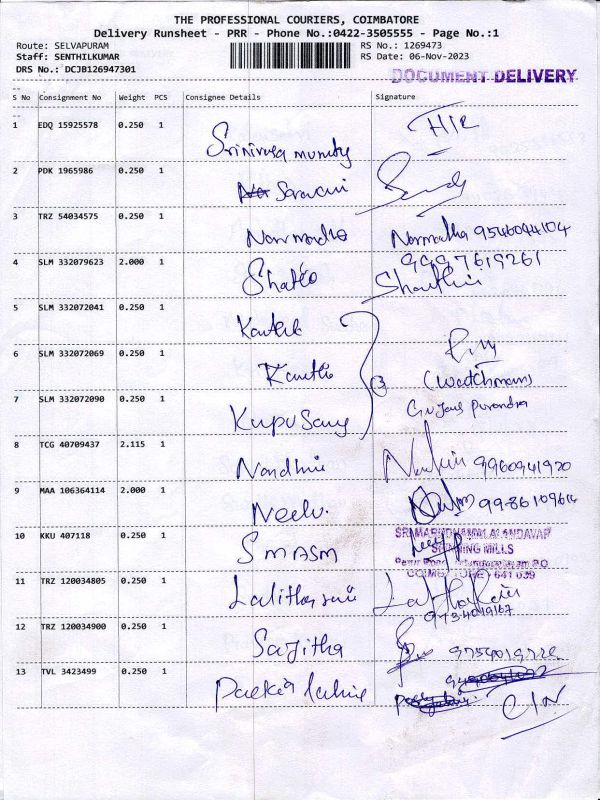 THE PROFESSIONAL COURIERS, COIMBATORE
Delivery Runsheet - PRR - Phone No.:0422-3505555 - Page No.:1
Route: SELVAPURAM RS No.: 1269473
Staff: SENTHILKUMAR RS Date: 06-Nov-2023
DRS No.: DCJB126947301
DOCUMENT DELIVERY
S No Consignment No Weight PCS Consignee Details Signature
1 EDQ 15925578 0.250 1
2 PDK 1965986 0.250 1 Saravani
3 TRZ 54034575 0.250 1 Narmadha Narmatha 9546044104
4 SLM 332079623 2.000 1 9997619261
5 SLM 332072041 0.250 1
6 SLM 332072069 0.250 1 (Watchman)
7 SLM 332072090 0.250 1 KupuSamy
8 TCG 40709437 2.115 1 Nandhini 9960941920
9 MAA 106364114 2.000 1 Neelu.
10 KKU 407118 0.250 1 SMASM
SPINNING MILLS
COIMBATORE - 641 039
11 TRZ 120034805 0.250 1
12 TRZ 120034900 0.250 1 Sajitha
13 TVL 3423499 0.250 1